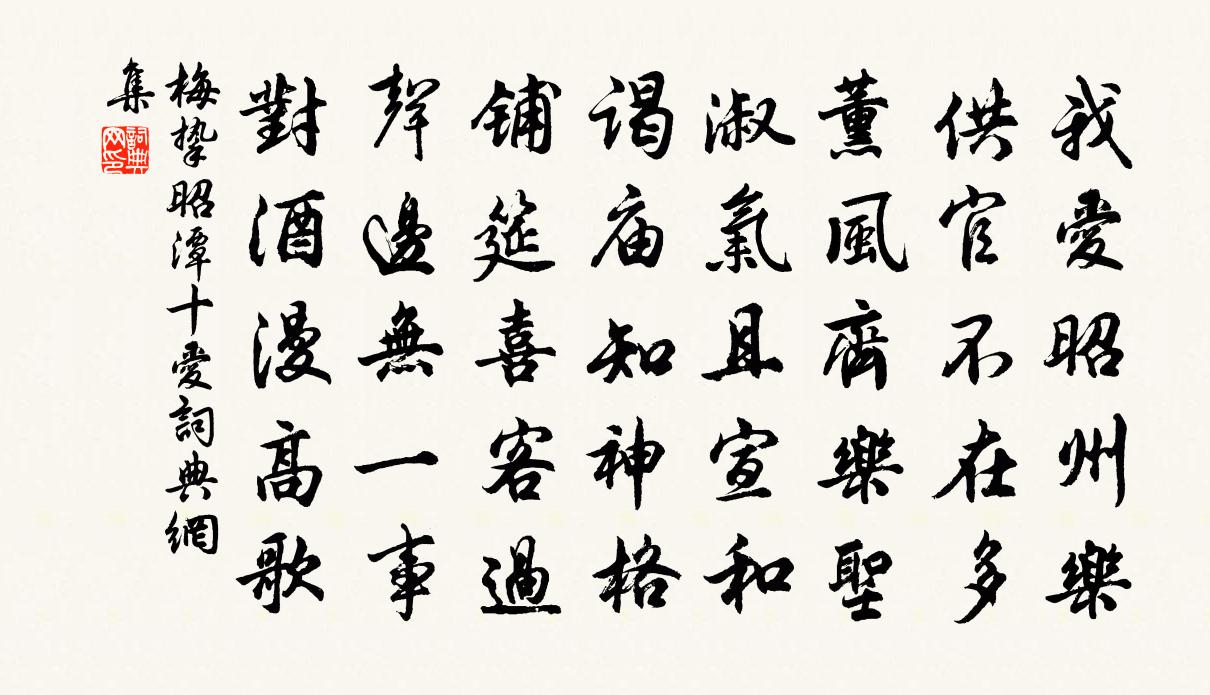 我愛昭州樂
供官不在多
薰風齊樂聖
淑氣且宣和
谒庙知神格
鋪筵喜客過
聲邊無一事
對酒漫高歌
梅挚昭潭十愛詞典網
集
詞典网印